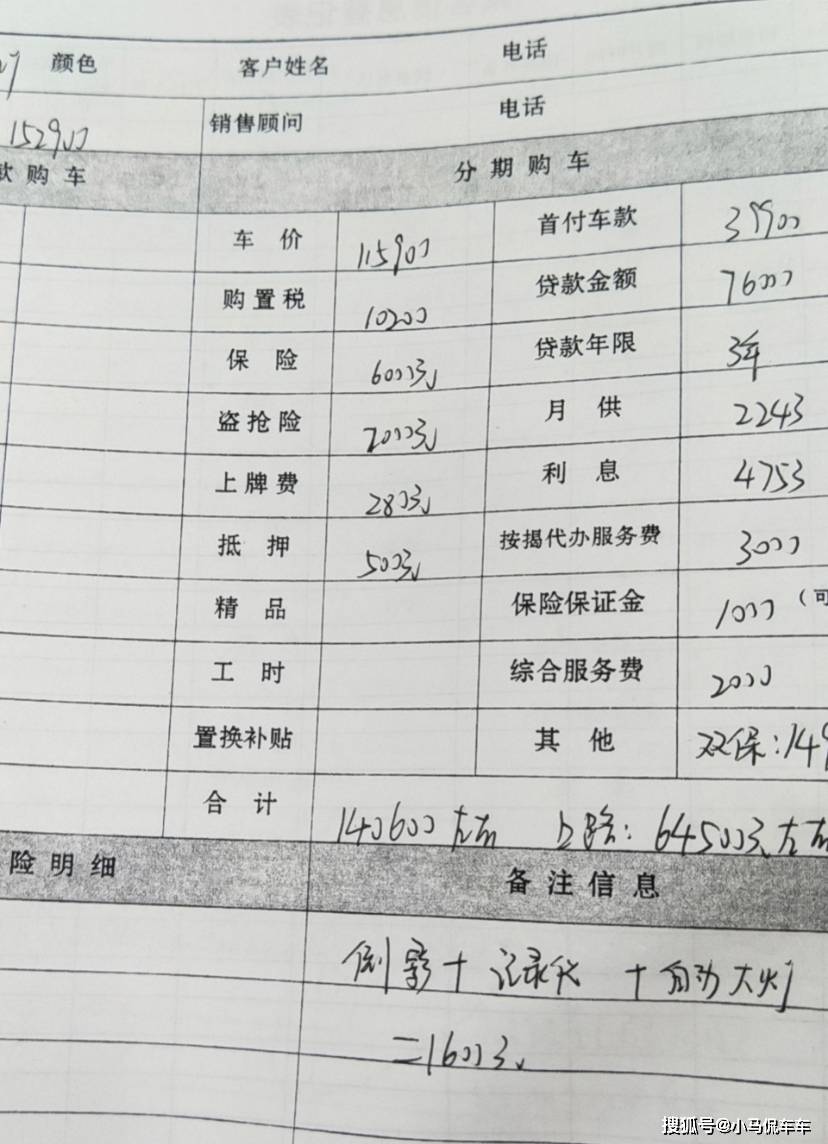 颜色 客户姓名 电话
152900 销售顾问 电话
款购车 分期购车
车价 115900 首付车款 39900
购置税 10200 贷款金额 76000
保险 6000元 贷款年限 3年
盗抢险 2000元 月供 2243
上牌费 280元 利息 4753
抵押 500元 按揭代办服务费 3000
精品 保险保证金 1000 (可
工时 综合服务费 2000
置换补贴 其他 双保:149
合计 140600左右 上路:64500元左右
险明细 备注信息
倒影+记录仪+自动大灯
=1600元
搜狐号@小马侃车车